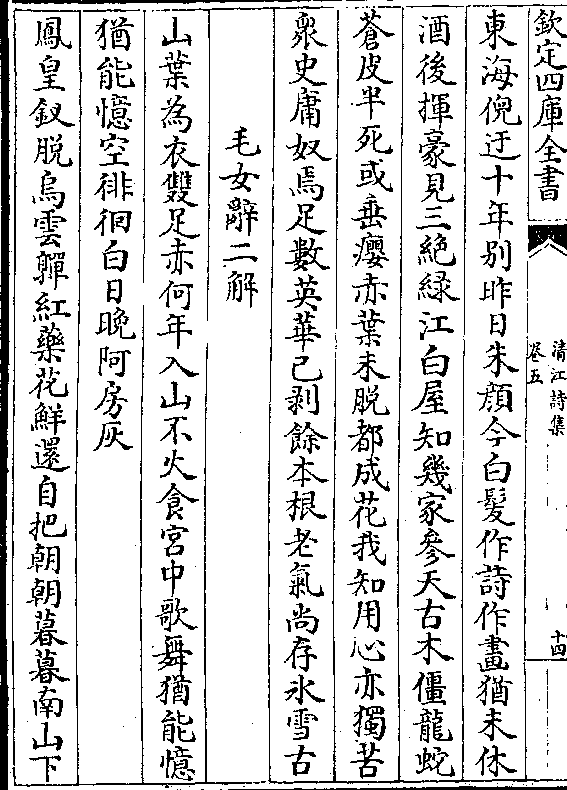 欽定四庫全書
清江詩集
卷五
十四
東海倪迂十年别昨日朱顔今白髪作詩作畫猶未休
酒後揮豪見三絶緑江白屋知幾家參天古木僵龍蛇
蒼皮半死或垂癭赤葉未脱都成花我知用心亦獨苦
衆史庸奴焉足數英華已剥餘本根老氣尚存氷雪古
毛女辭二解
山葉為衣雙足赤何年入山不火食宫中歌舞猶能憶
猶能憶空徘徊白日晚阿房灰
鳳皇釵脱烏雲嚲紅藥花鮮還自把朝朝暮暮南山下